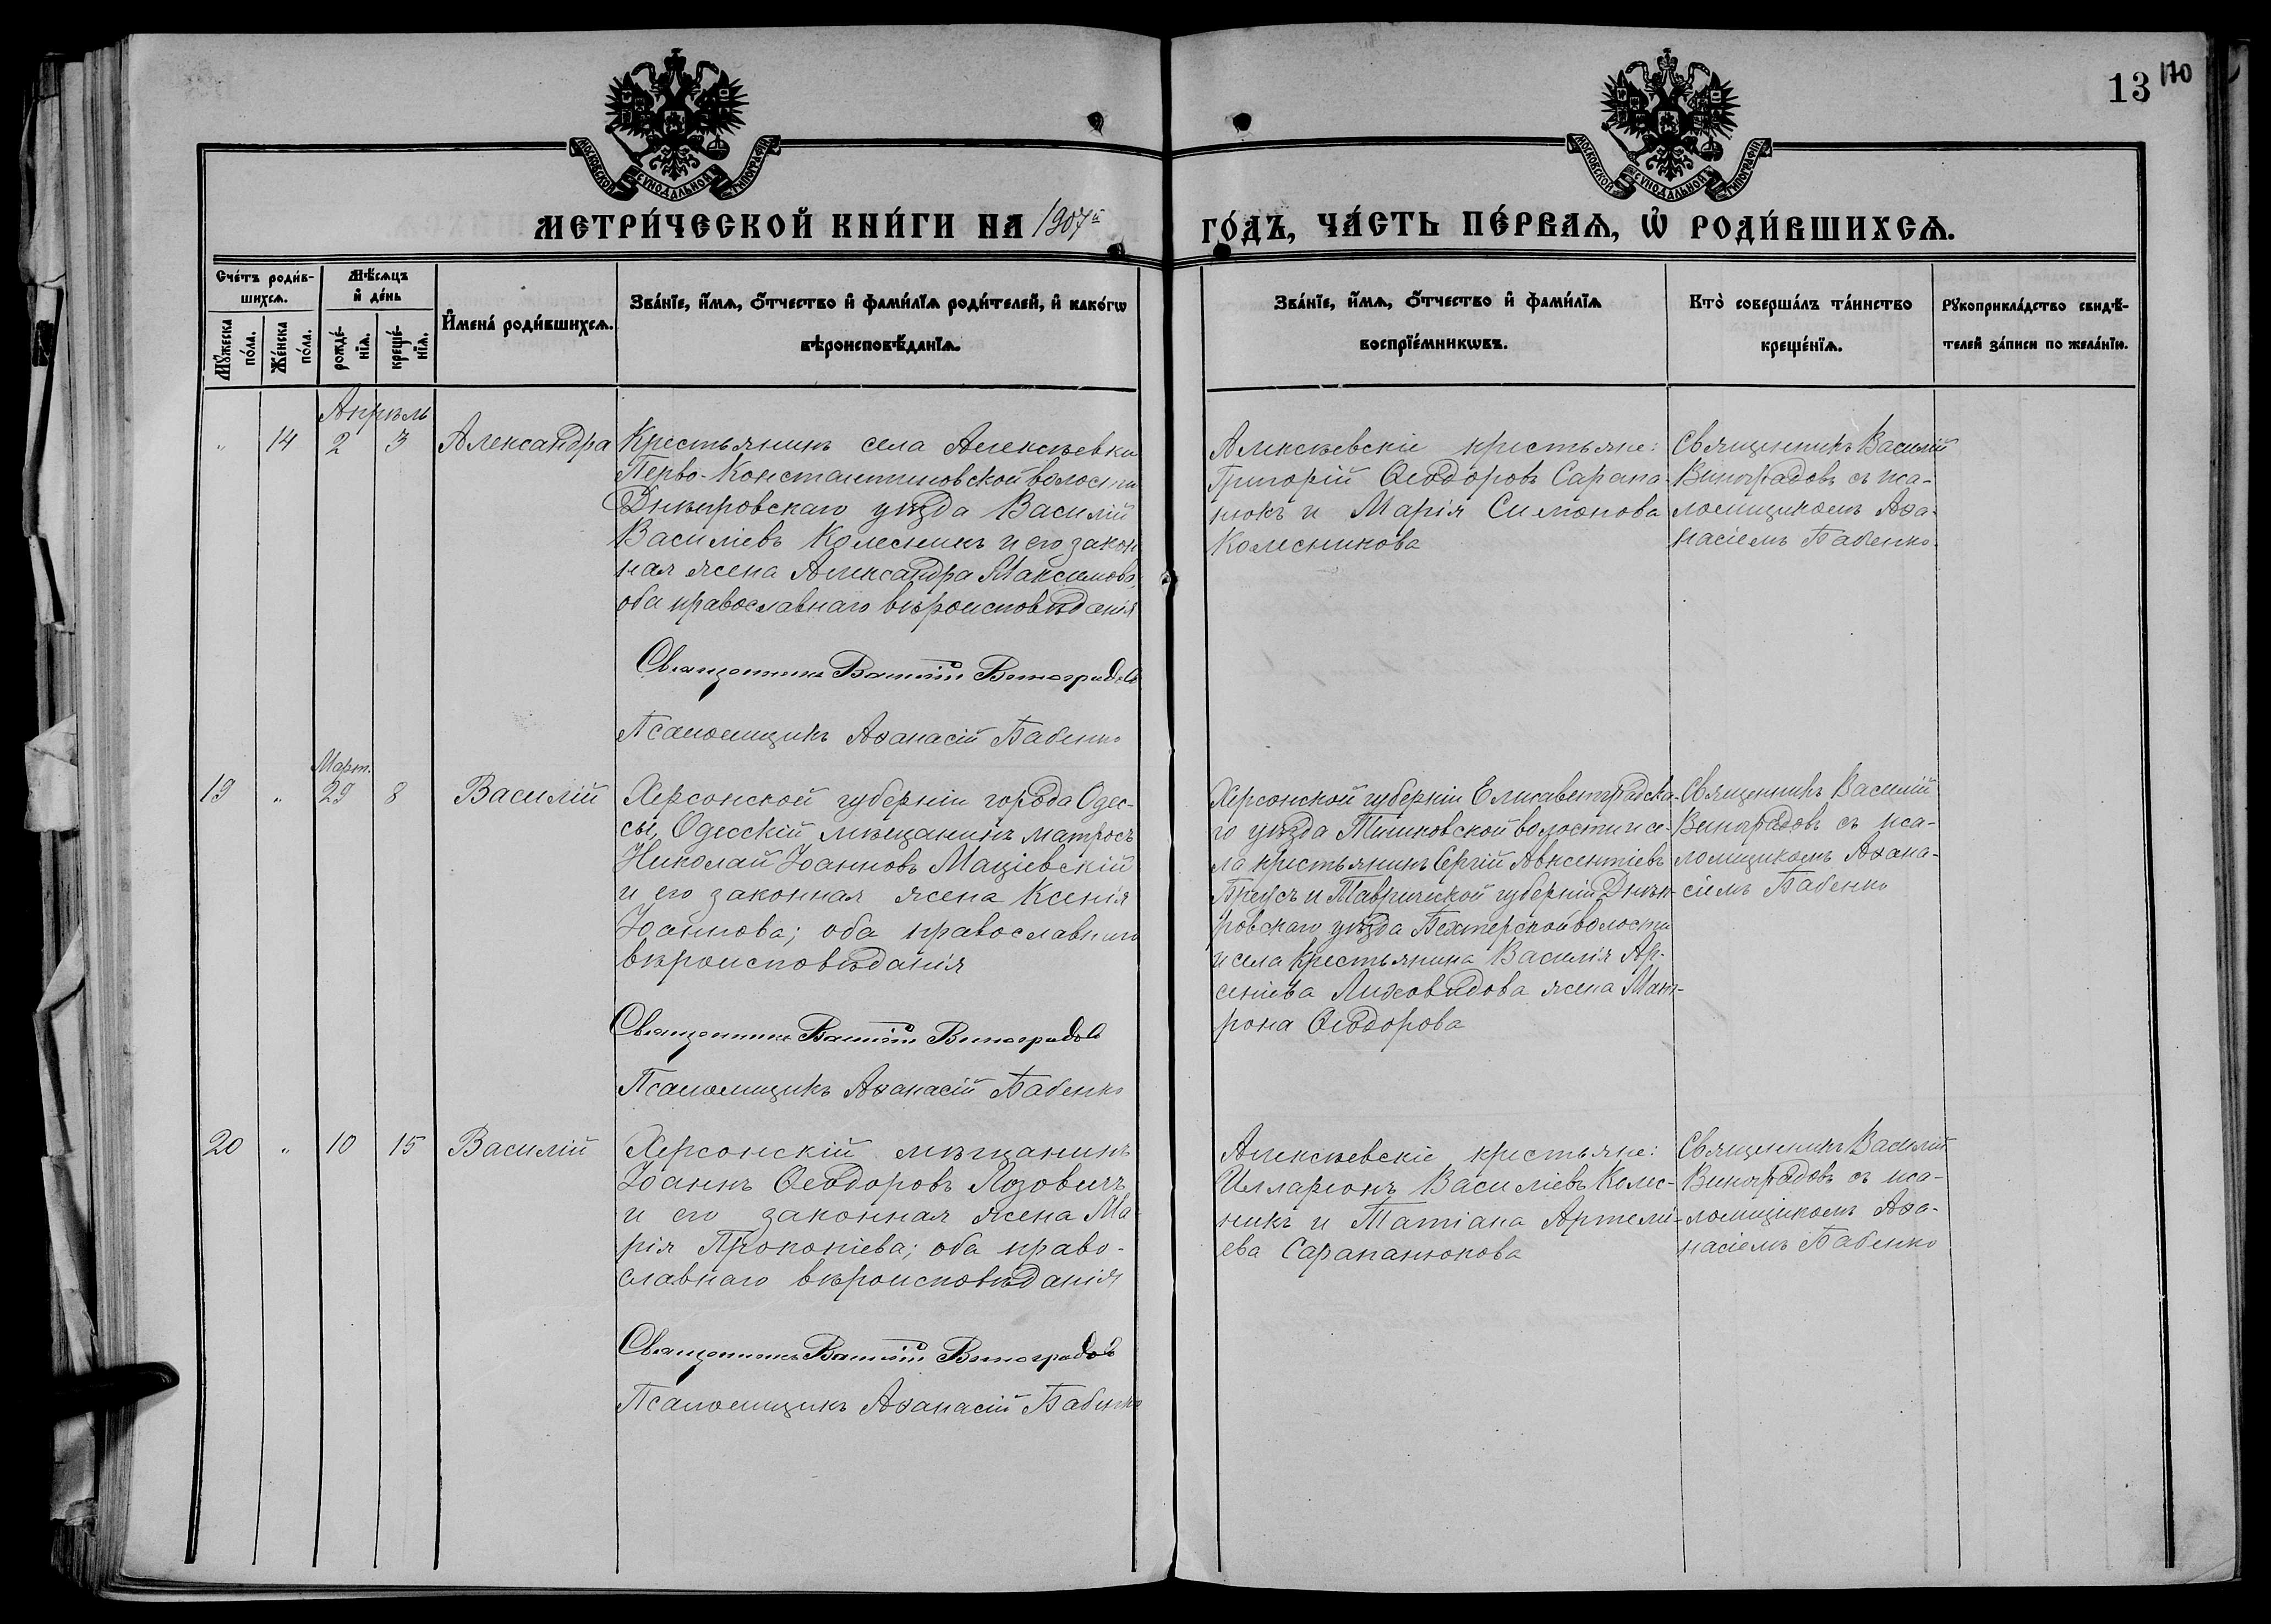 13 170
МОСКОВСКОЙ СУНОДАЛЬНОЙ ТИПОГРАФІИ
МОСКОВСКОЙ СУНОДАЛЬНОЙ ТИПОГРАФІИ
МЕТРИ́ЧЕСКОЙ КНИ́ГИ НА 1907й
ГО́ДЪ, ЧА́СТЬ ПЕ́РВАѦ, Ѡ҆ РОДИ́ВШИХСѦ.
Сче́тъ роди́в-
шихсѧ.
Мꙋ́жеска по́ла.
Же́нска по́ла.
Мѣ́сѧцъ
и҆ де́нь
рожде́-
нїѧ.
креще́-
нїѧ.
И҆мена́ роди́вшихсѧ.
Зва́нїе, и҆́мѧ, ѻ҆́тчество и҆ фами́лїѧ роди́телей, и҆ како́гѡ
вѣроисповѣ́данїѧ.
Зва́нїе, и҆́мѧ, ѻ҆́тчество и҆ фами́лїѧ
воспрїе́мникѡвъ.
Кто̀ соверша́лъ та́инство
креще́нїѧ.
Рꙋкоприкла́дство свидѣ́-
телей за́писи по жела́нїю.
Апрѣль
" 14 2 3 Александра
Крестьянинъ села Алексѣевки
Перво-Константиновской волости
Днѣпровскаго уѣзда Василій
Василіевъ Колесникъ и его закон
ная жена Александра Максимова,
оба православнаго вѣроисповѣданія
Священникъ Василій Виноградовъ
Псаломщикъ Аѳанасій Бабенко
Алексѣевскіе крестьяне:
Григорій Ѳеодоровъ Сарапа-
нюкъ и Марія Симонова
Колесникова
Священникъ Василій
Виноградовъ съ пса-
ломщикомъ Аѳа-
насіемъ Бабенко.
Март.
19 " 29 8 Василій
Херсонской губерніи города Одес-
сы, Одесскій мѣщанинъ матросъ
Николай Іоанновъ Маціевскій
и его законная жена Ксенія
Іоаннова; оба православнаго
вѣроисповѣданія
Священникъ Василій Виноградовъ
Псаломщикъ Аѳанасій Бабенко
Херсонской губерніи Елисаветградска-
го уѣзда Тишковской волости и се-
ла крестьянинъ Сергій Авксентіевъ
Бреусъ и Таврической губерніи Днѣп-
ровскаго уѣзда Бехтерской волости
и села крестьянина Василія Ар-
сеніева Лиховидова жена Мат-
рона Ѳеодорова
Священникъ Василій
Виноградовъ съ пса-
ломщикомъ Аѳана-
сіемъ Бабенко
20 " 10 15 Василій
Херсонскій мѣщанинъ
Іоаннъ Ѳеодоровъ Лозовичъ
и его законная жена Ма-
рія Прокопіева; оба право-
славнаго вѣроисповѣданія
Священникъ Василій Виноградовъ
Псаломщикъ Аѳанасій Бабенко
Алексѣевскіе крестьяне:
Илларіонъ Василіевъ Колес-
никъ и Татіана Артемі-
ева Сарапанюкова
Священникъ Василій
Виноградовъ съ пса-
ломщикомъ Аѳа-
насіемъ Бабенко